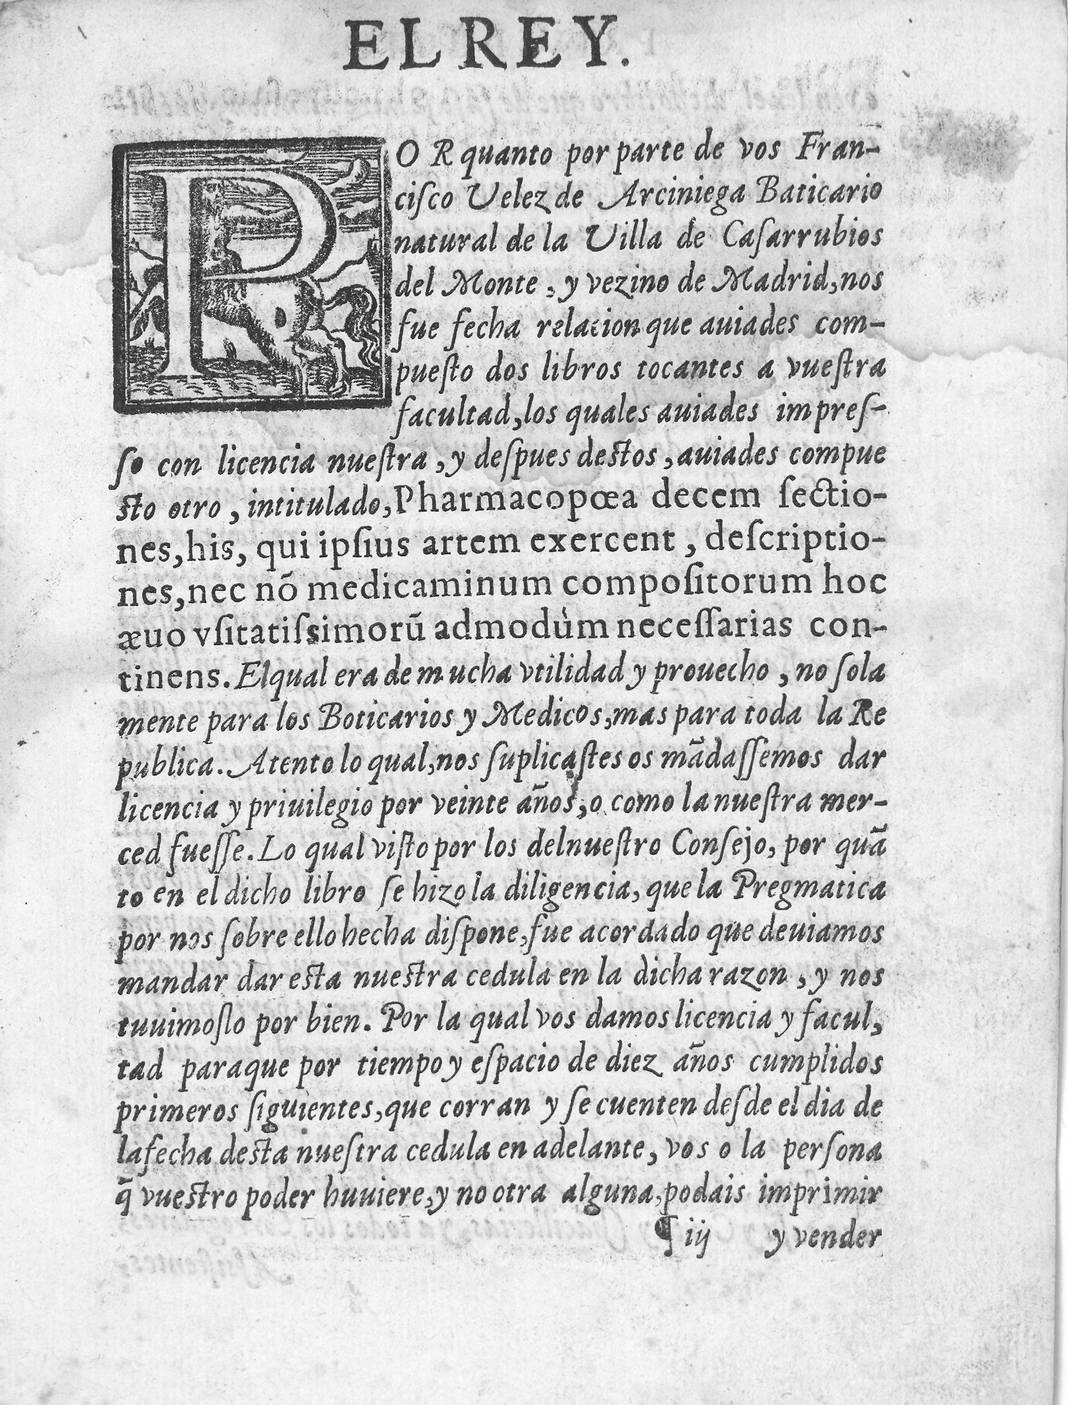 EL REY.
ROR quanto por parte de vos Fran-
ciſco Velez de Arciniega Baticario
natural de la Villa de Caſarrubios
del Monte, y vezino de Madrid, nos
fue fecha relacion que auiades com-
pueſto dos libros tocantes a vueſtra
facultad, los quales auiades impreſ-
ſo con licencia nueſtra, y deſpues deſtos, auiades compue
ſto otro, intitulado, Pharmacopœa decem ſectio-
nes, his, qui ipſius artem exercent, deſcriptio-
nes, nec nō medicaminum compoſitorum hoc
æuo vſitatiſsimorū admodùm neceſſarias con-
tinens. El qual era de mucha vtilidad y prouecho, no ſola
mente para los Boticarios y Medicos, mas para toda la Re
publica. Atento lo qual, nos ſuplicaſtes os mãdaſſemos dar
licencia y priuilegio por veinte años, o como la nueſtra mer-
ced fueſſe. Lo qual viſto por los del nueſtro Conſejo, por quã
to en el dicho libro ſe hizo la diligencia, que la Pregmatica
por nos ſobre ello hecha diſpone, fue acordado que deuiamos
mandar dar eſta nueſtra cedula en la dicha razon, y nos
tuuimoſlo por bien. Por la qual vos damos licencia y facul,
tad paraque por tiempo y eſpacio de diez años cumplidos
primeros ſiguientes, que corran y ſe cuenten deſde el dia de
la fecha deſta nueſtra cedula en adelante, vos o la perſona
q̃ vueſtro poder huuiere, y no otra alguna, podais imprimir
¶ iij y vender